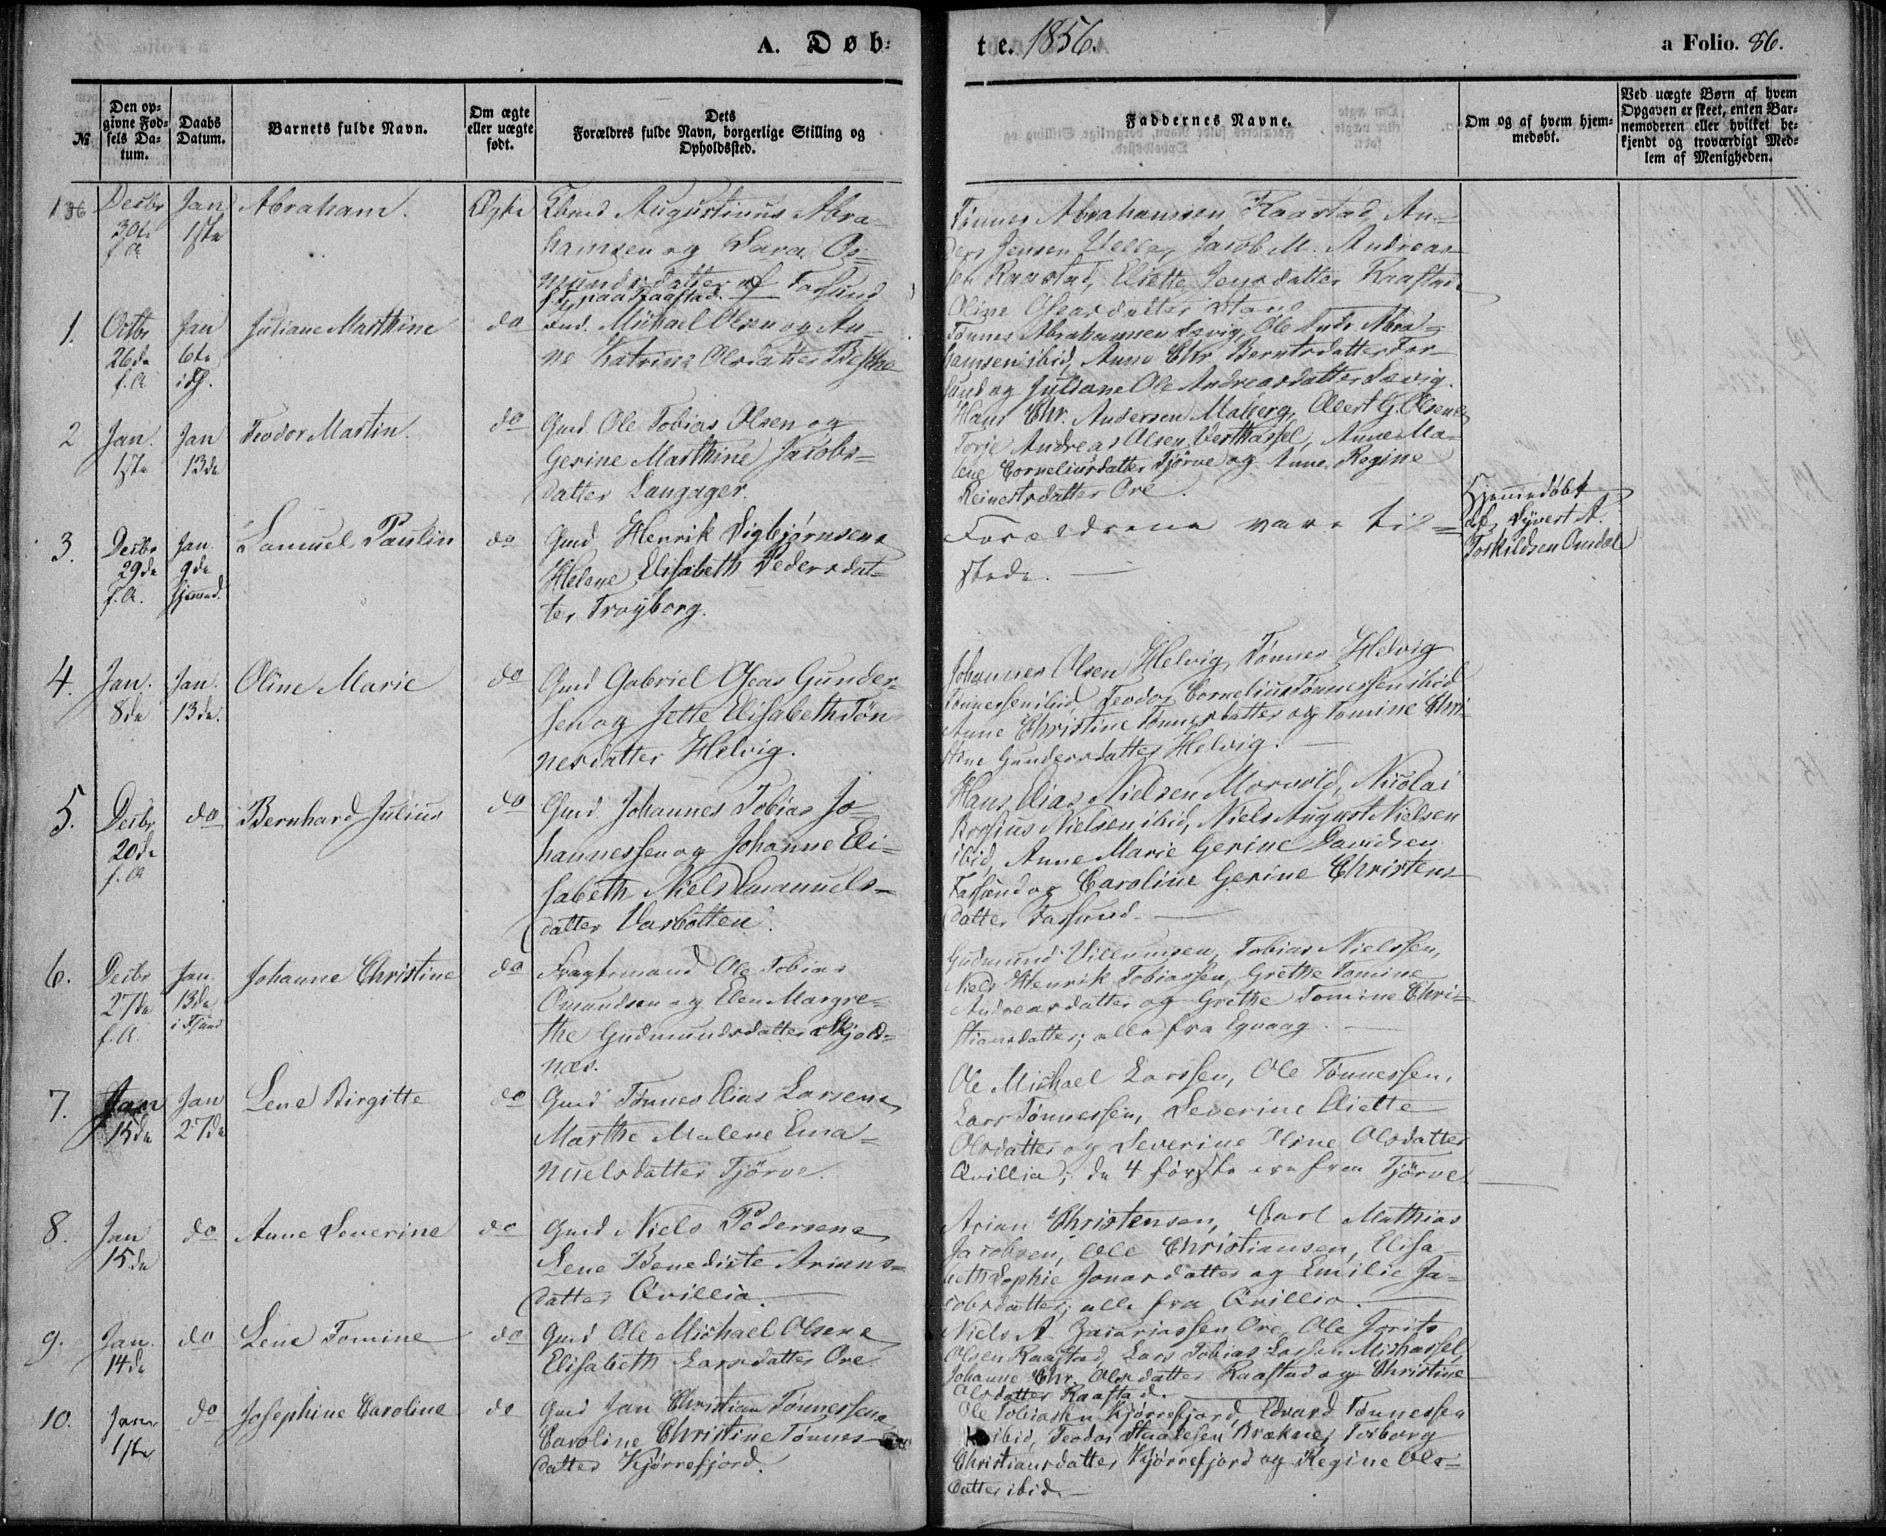 A. Døb-
te. 1856.
a Folio. 86.
№
Den op-
givne Fød-
sels Da-
tum.
Daabs
Datum.
Barnets fulde Navn.
Om ægte
eller uægte
født.
Dets
Forældres fulde Navn, borgerlige Stilling og
Opholdssted.
Faddernes Navne.
Om og af hvem hjem-
medøbt.
Ved uægte Børn af hvem
Opgaven er skeet, enten Bar-
nemoderen eller hvilket be-
kjendt og troværdigt Med-
lem af Menigheden.
136
Desbr
30te
f.A
Jan
1ste
Abraham.
Ægte
Augustinus Abra-
hamsen og Sara Os-
mundsdatter af Farsund
Tønnes Abrahamsen Raastad, An-
ders Jensen Velle, Jacob M. Andreas-
sen Raastad, Eliette Jensdatter Raastad
Oline Oseasdatter
1.
Octbr
26de
f.A
Jan
6te
i Fs.
Juliane Marthine
do
Ind. Michael Olsen og An-
ne Katrine Olsdatter
Tønnes Abrahamsen Løvig, Ole Andr. Abra-
hamsen ibid, Anne Chr. Berntsdatter Far-
sund og Juliane Ole Andreasdatter Løvig.
2
Jan.
1ste
Jan
13de
Teodor Martin.
do
Gmd. Ole Tobias Olsen og
Gerine Marthine Jacobs-
datter Langager.
Hans Chr. Andersen Maberg, Olert G. Olsen
Torje Andreas Olsen Vesthassel, Anne Ma-
lene Corneliusdatter Tjørve og Anne Regine
Reinertsdatter Ore.
3.
Desbr
29de
f.A.
Jan.
9de
hjemmed.
Samuel Paulin
do
Gmd Henrik Sigbjørnsen &
Helene Elisabeth Pedersdat-
ter Trøyborg.
Forældrene vare til-
stede.
Hjemmedøbt
af Syvert A.
Torkildsen Omdal
4.
Jan.
8de
Jan.
13de.
Oline Marie
do
Gmd Gabriel Oseas Gunder-
sen og Jette Elisabeth Tøn-
nesdatter Helvig.
Johannes Olsen Helvig, Tønnes Helvig
Tønnessen ibid Teodor Cornelius Tønnessen ibid
Anne Christine Tønnesdatter og Tomine Chri-
stine Gundersdatter Helvig.
5.
Desbr
20de
f.A
do
Bernhard Julius
do
Gmd Johannes Tobias Jo-
hannessen og Johanne Eli-
sabeth Niels Emanuels-
datter Vasbotten.
Hans Elias Nielsen Morvold, Nicolai
Nielsen ibid, Niels August Nielsen
ibid, Anne Marie Gerine Davidsen
Farsund og Caroline Gerine Christens-
datter Farsund.
6.
Desbr
27de
f.A.
Jan.
13de
i Fsund
Johanne Christine
do
Fragtemand Ole Tobias
Omundsen og Elen Margre-
the Gudmundsdatter Skjold-
næs.
Gudmund Villumsen, Tobias Nielssen,
Niels Henrik Tobiassen, Grethe Tomine
Andreasdatter og Grethe Tomine Chri-
stiansdatter; alle fra Egvaag.
7.
Jan
15de
Jan
27de
Lene Birgitte
do
Gmd Tønnes Elias Larsen &
Marthe Malene Ema-
nuelsdatter Tjørve.
Ole Michael Larssen, Ole Tønnessen,
Lars Tønnessen, Severine Eliette
Olsdatter og Severine Oline Olsdatter
Qvillia; de 4 første ere fra Tjørve
8.
Jan
15de
do
Anne Severine
do
Gmd Niels Pedersen &
Lene Benedicte Arians-
datter Qvillia.
Arian Christensen, Carl Mathias
Jacobsen, Ole Christiansen, Elisa-
beth Sophie Jonasdatter og Emilie Ja-
cobsdatter; alle fra Qvillia.
9.
Jan.
14de
do
Lene Tomine
do
Gmd Ole Michael Olsen &
Elisabeth Larsdatter Ore
Niels A. Zacariassen Ore, Ole Jorits
Olsen Raastad, Lars Tobias Larssen Midhassel,
Johanne Chr. Olsdatter Raastad og Christine
Olsdatter Raastad.
10.
Jan
1ste
do
Josephine Caroline
do
Gmd Jan Christian Tønnessen &
Caroline Christine Tønnes-
datter Kjørrefjord.
Ole Tobiassen Kjørrefjord, Edvard Tønnessen
ibid, Teodor Staalesen Brækne, Torborg
Christiansdatter Kjørrefjord og Regine Ols-
datter ibid.